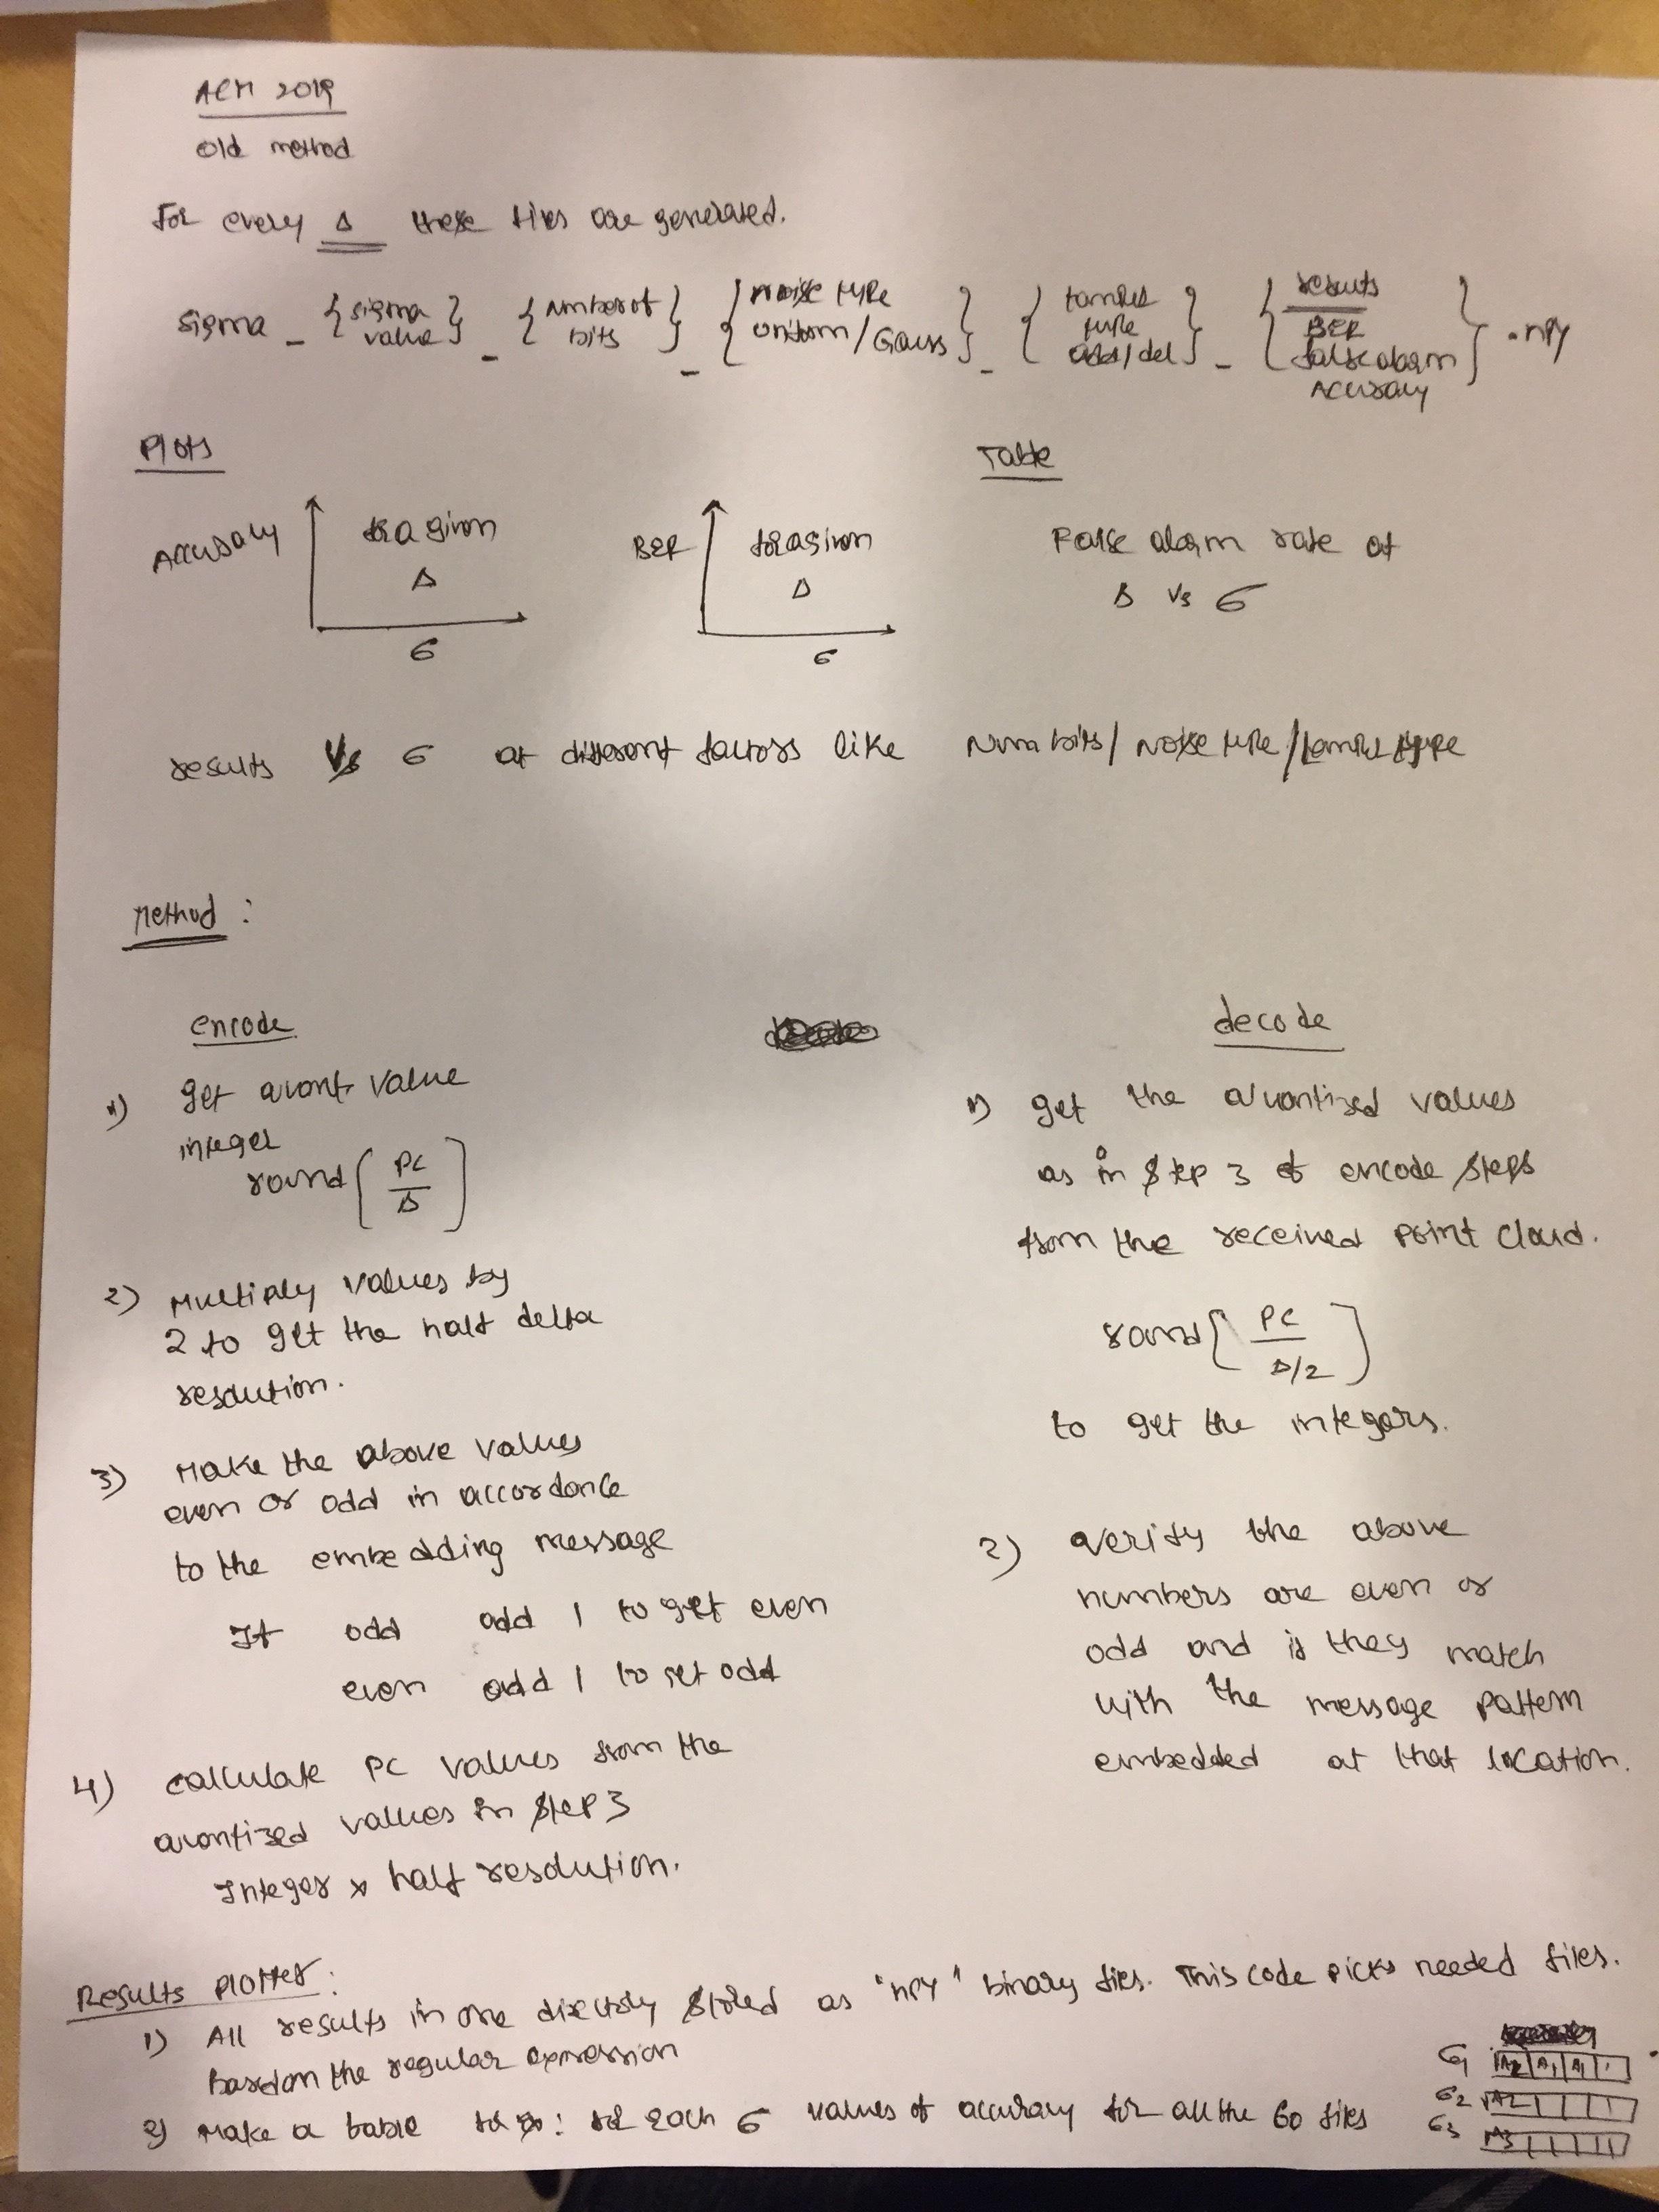 ACM 2019
old method
For every Δ these files are generated.
sigma _ {sigma value} _ {number of bits} _ {noise type uniform/Gauss} _ {tamper type add/del} _ {results BER false alarm Accuracy} .npy
Plots
Table
Accuracy
for a given Δ
σ
BER
for a given Δ
σ
False alarm rate of
Δ vs σ
results Vs σ at different factors like num bits/ noise type/tamper type
Method :
encode
1) get quant value
integer
round ( PC / Δ )
2) Multiply values by
2 to get the half delta
resolution.
3) Make the above values
even or odd in accordance
to the embedding message
If odd add 1 to get even
even add 1 to get odd
4) calculate PC values from the
quantized values in step 3
Integer x half resolution.
decode
1) get the quantized values
as in step 3 of encode steps
from the received point cloud.
round ( PC / Δ/2 )
to get the integers.
2) verify the above
numbers are even or
odd and if they match
with the message pattern
embedded at that location.
Results plotter:
1) All results in one directory stored as "npy" binary files. This code picks needed files.
based on the regular expression
2) Make a table for each σ values of accuracy for all the 60 files
σ1
σ2
σ3